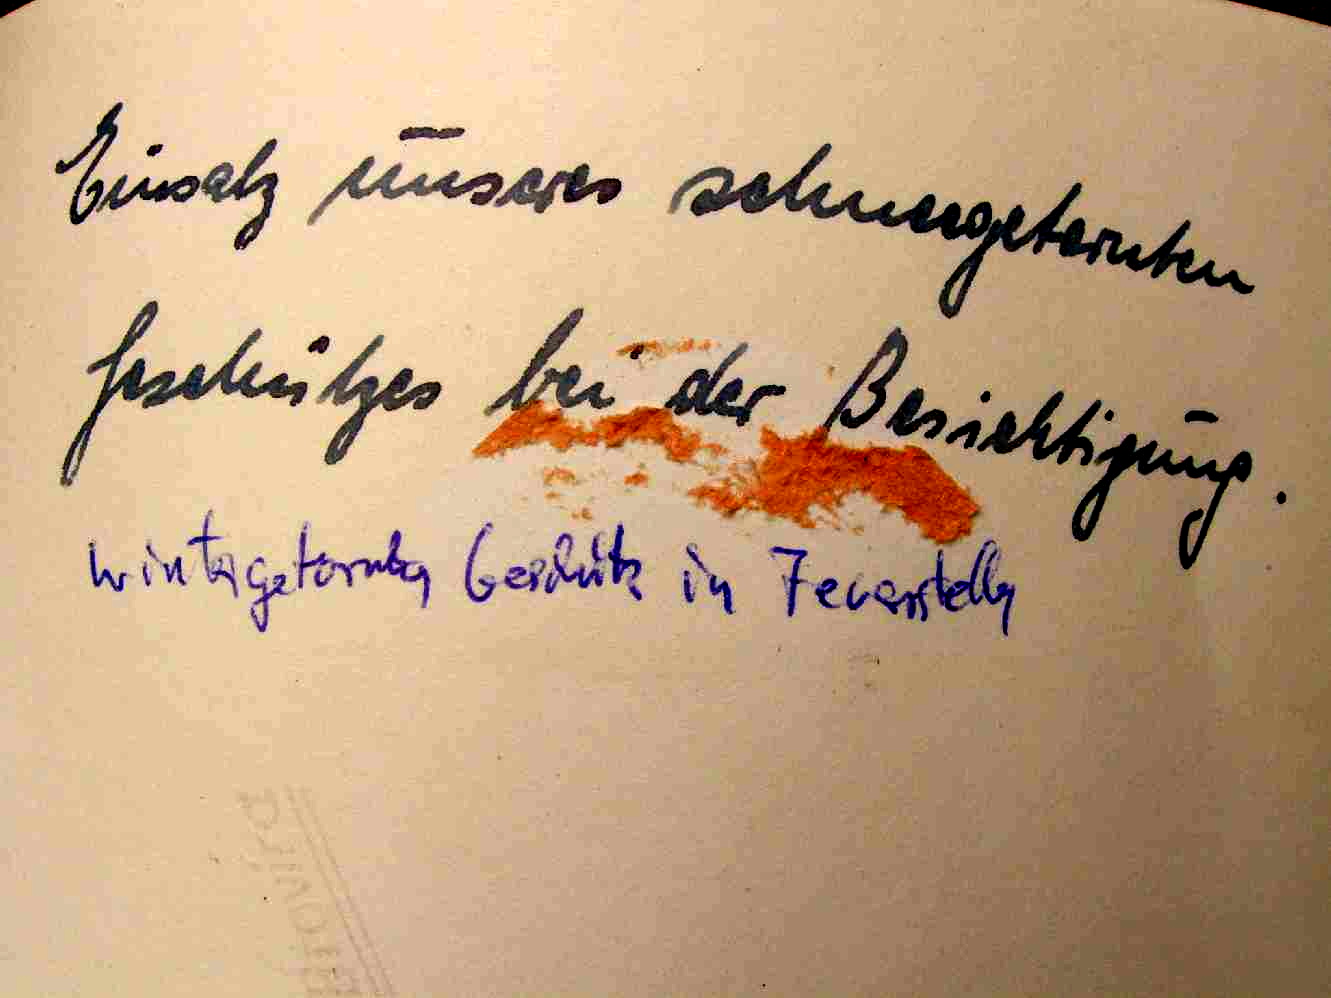 Einsatz unseres schneegetarnten
Geschützes bei der Besichtigung.
wintergetarntes Geschütz in Feuerstellg